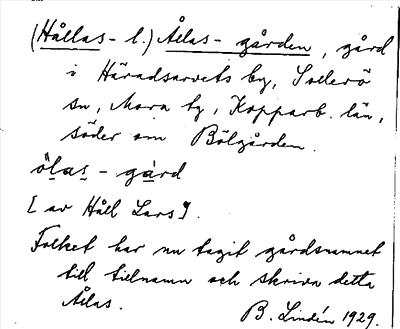 (Hållas- l.) Ålas-gården, gård
i Häradsarvets by, Sollerö
sn, Mora tg, Kopparb. län,
söder om Bölgården.
ölas-gård
[av Håll Lars].
Folket har nu tagit gårdsnamnet
till tillnamn och skriva detta
Ålas.
B. Lindén 1929.